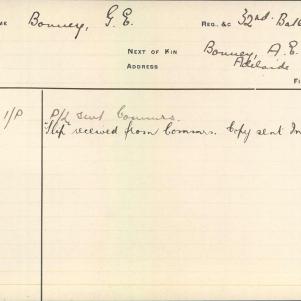 ME Bonney, G. E. REG. &C 32nd. Bat
NEXT OF KIN Bonney, A. E.
ADDRESS Adelaide
1/P P/C sent Commrs.
"Slip" received from Commrs. Copy sent